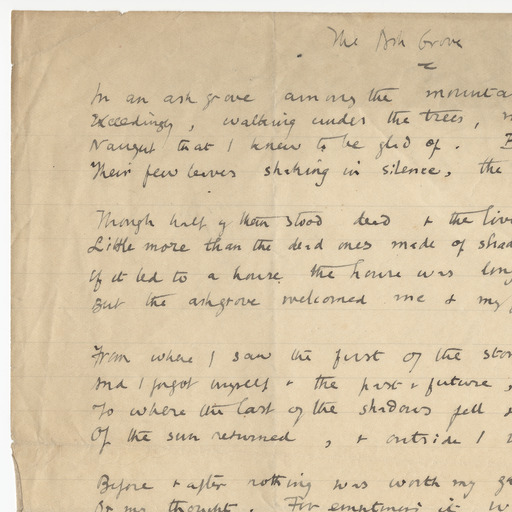 The Ash Grove
In an ash grove among the mounta
Exceedingly, walking under the trees,
Naught that I knew to be glad of.
Their few leaves shaking in silence, the
Though half of them stood dead & the livi
Little more than the dead ones made of shad
If it led to a house the house was long
But the ashgrove welcomed me & my
From where I saw the first of the ston
And I forgot myself & the past & future,
To where the last of the shadows fell &
Of the sun returned, & outside I
Before & after nothing was worth my ga
Or my thought. For emptiness it w